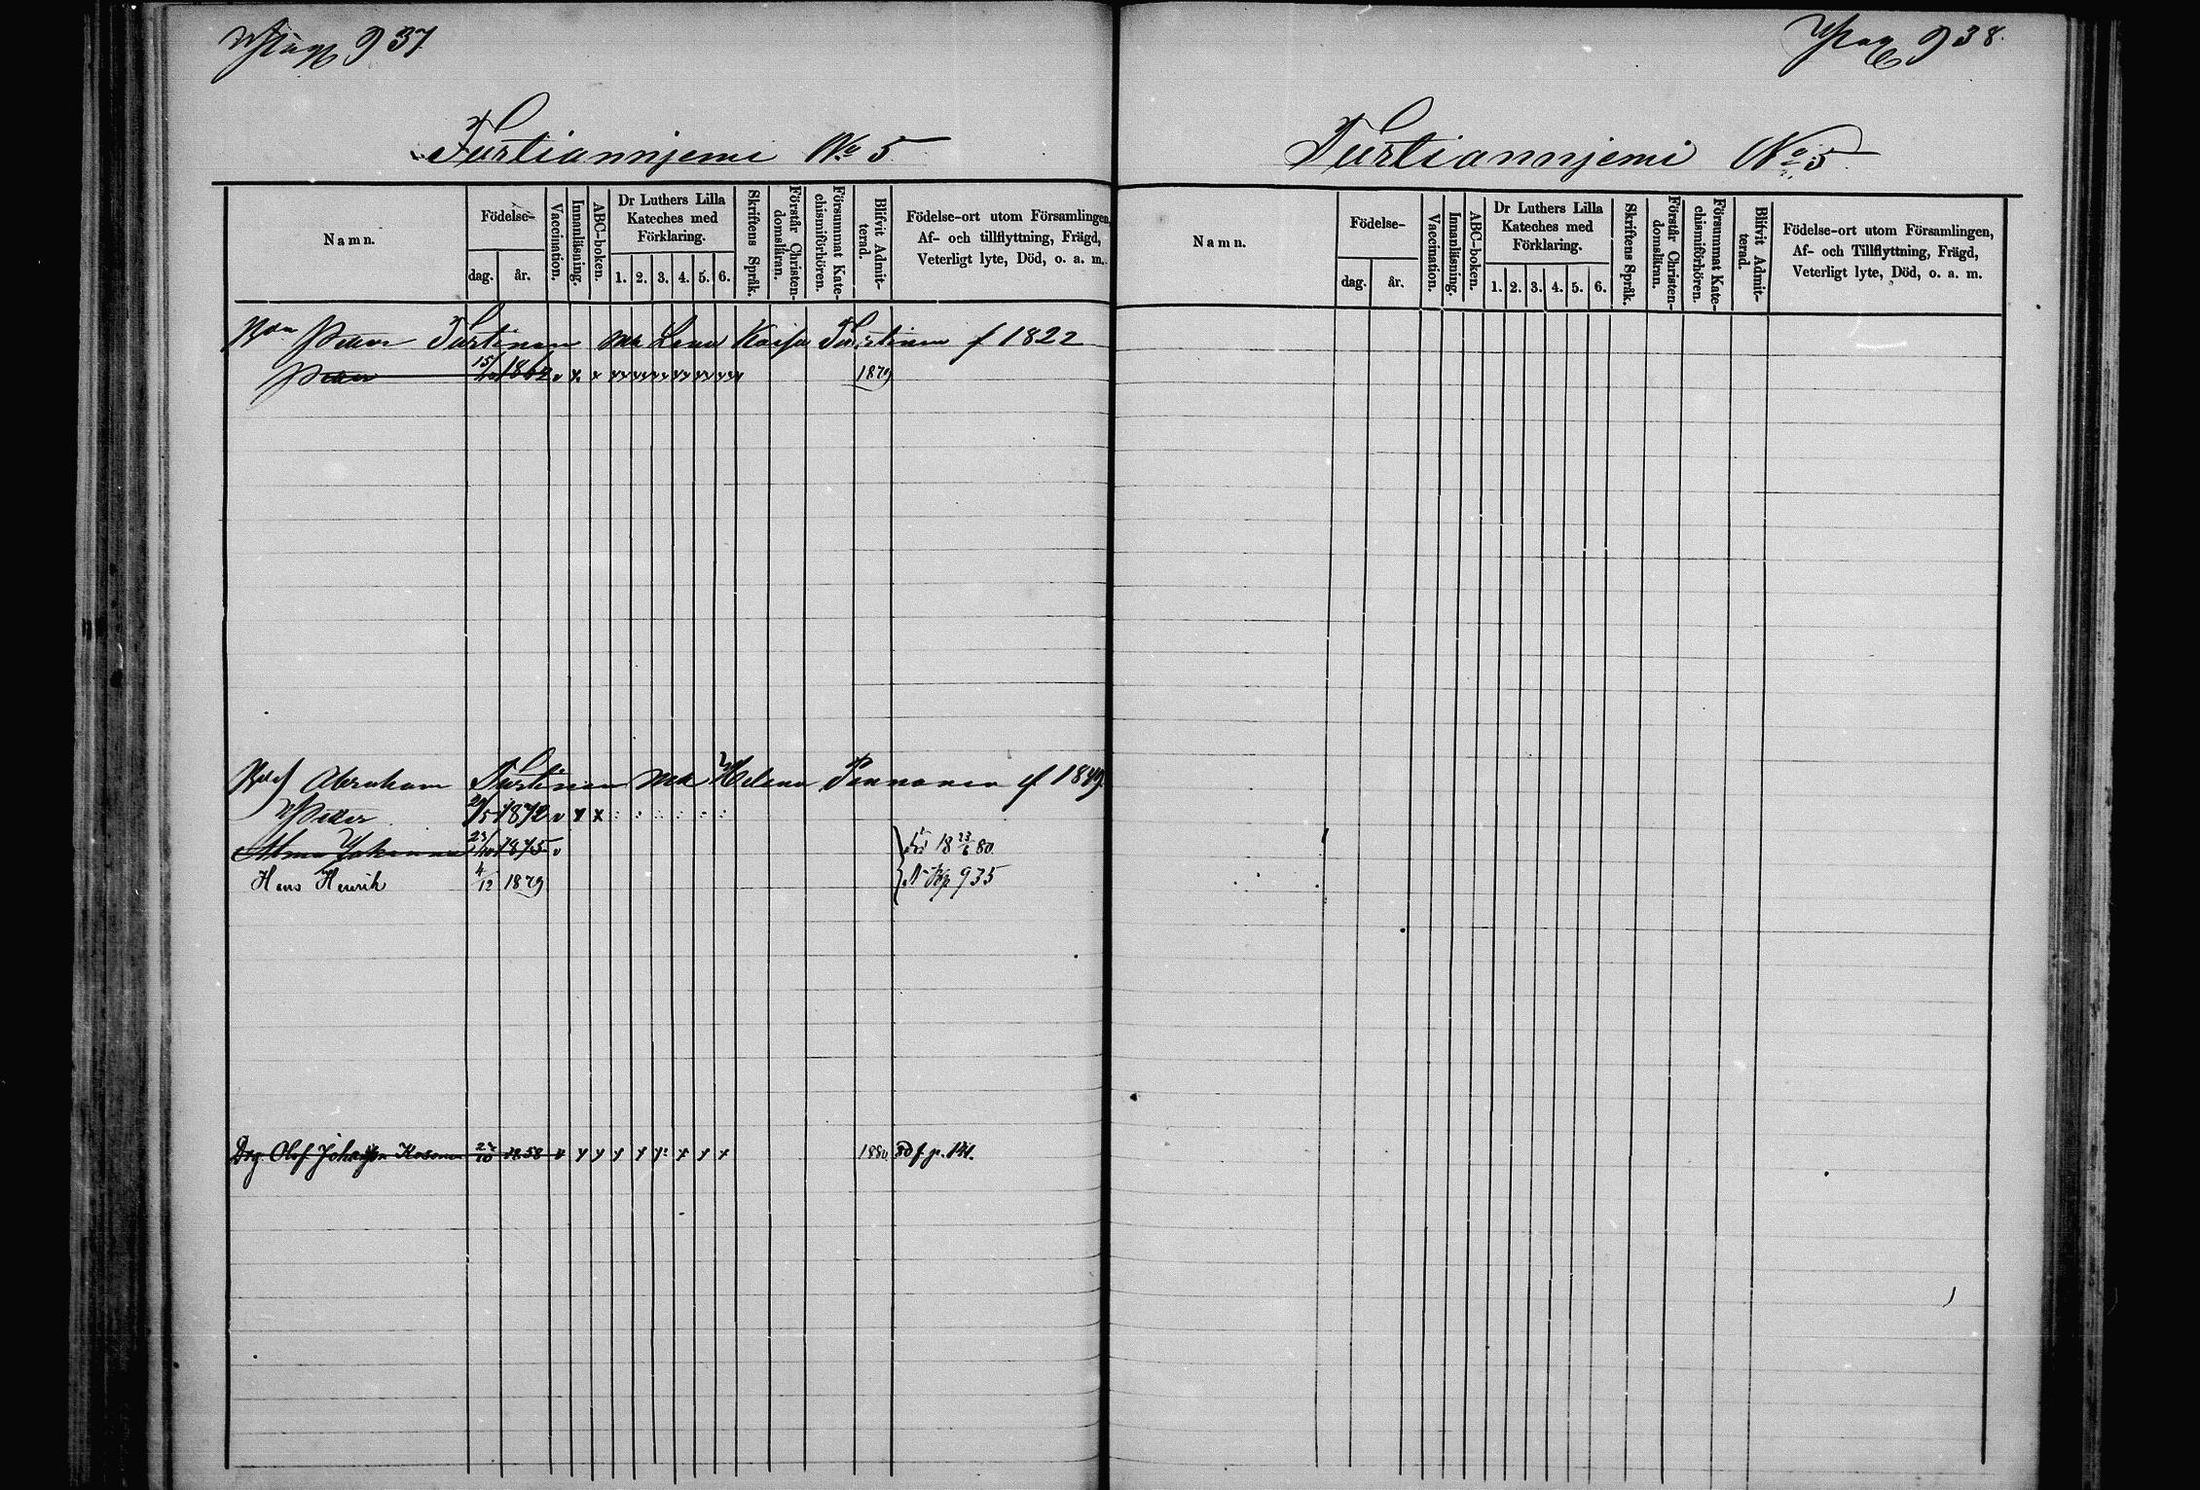 Pag 937
Turtianniemi No 5
Namn.
Födelse-
dag.
år.
Vaccination.
Innanläsning.
ABC-boken.
Dr Luthers Lilla
Kateches med
Förklaring.
1. 2. 3. 4. 5. 6.
Skriftens Språk.
Förstår Christen-
domsläran.
Försummat Kate-
chismiförhören.
Blifvit Admit-
terad.
Födelse-ort utom Församlingen,
Af- och tillflyttning, Frägd,
Veterligt lyte, Död, o. a. m.
Petter Turtinen Lena Kaisa Turtinen f 1822
Petter 15/10 1862 v x x 1879
Abraham Turtinen Helena f
Petter 1872 v x x
Alma Johanna 23/10 1875 v 18 23/6 80
Hans Henrik 4/12 1879 935
Drg Olof Johansson Kosonen 27/10 1858 v 1880 80 f. p. 141.
Pag 938.
Turtianniemi No 5
Namn.
Födelse-
dag.
år.
Vaccination.
Innanläsning.
ABC-boken.
Dr Luthers Lilla
Kateches med
Förklaring.
1. 2. 3. 4. 5. 6.
Skriftens Språk.
Förstår Christen-
domsläran.
Försummat Kate-
chismiförhören.
Blifvit Admit-
terad.
Födelse-ort utom Församlingen,
Af- och Tillflyttning, Frägd,
Veterligt lyte, Död, o. a. m.